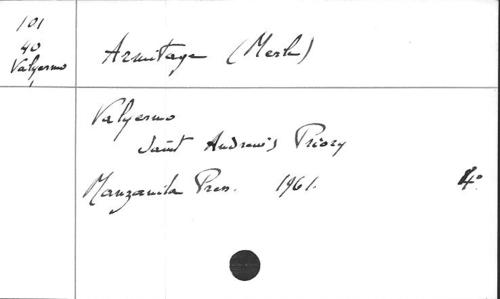 101
40
Valyermo
Armitage (Merle)
Valyermo
Saint Andrew's Priory
Manzanita Press. 1961. 4°